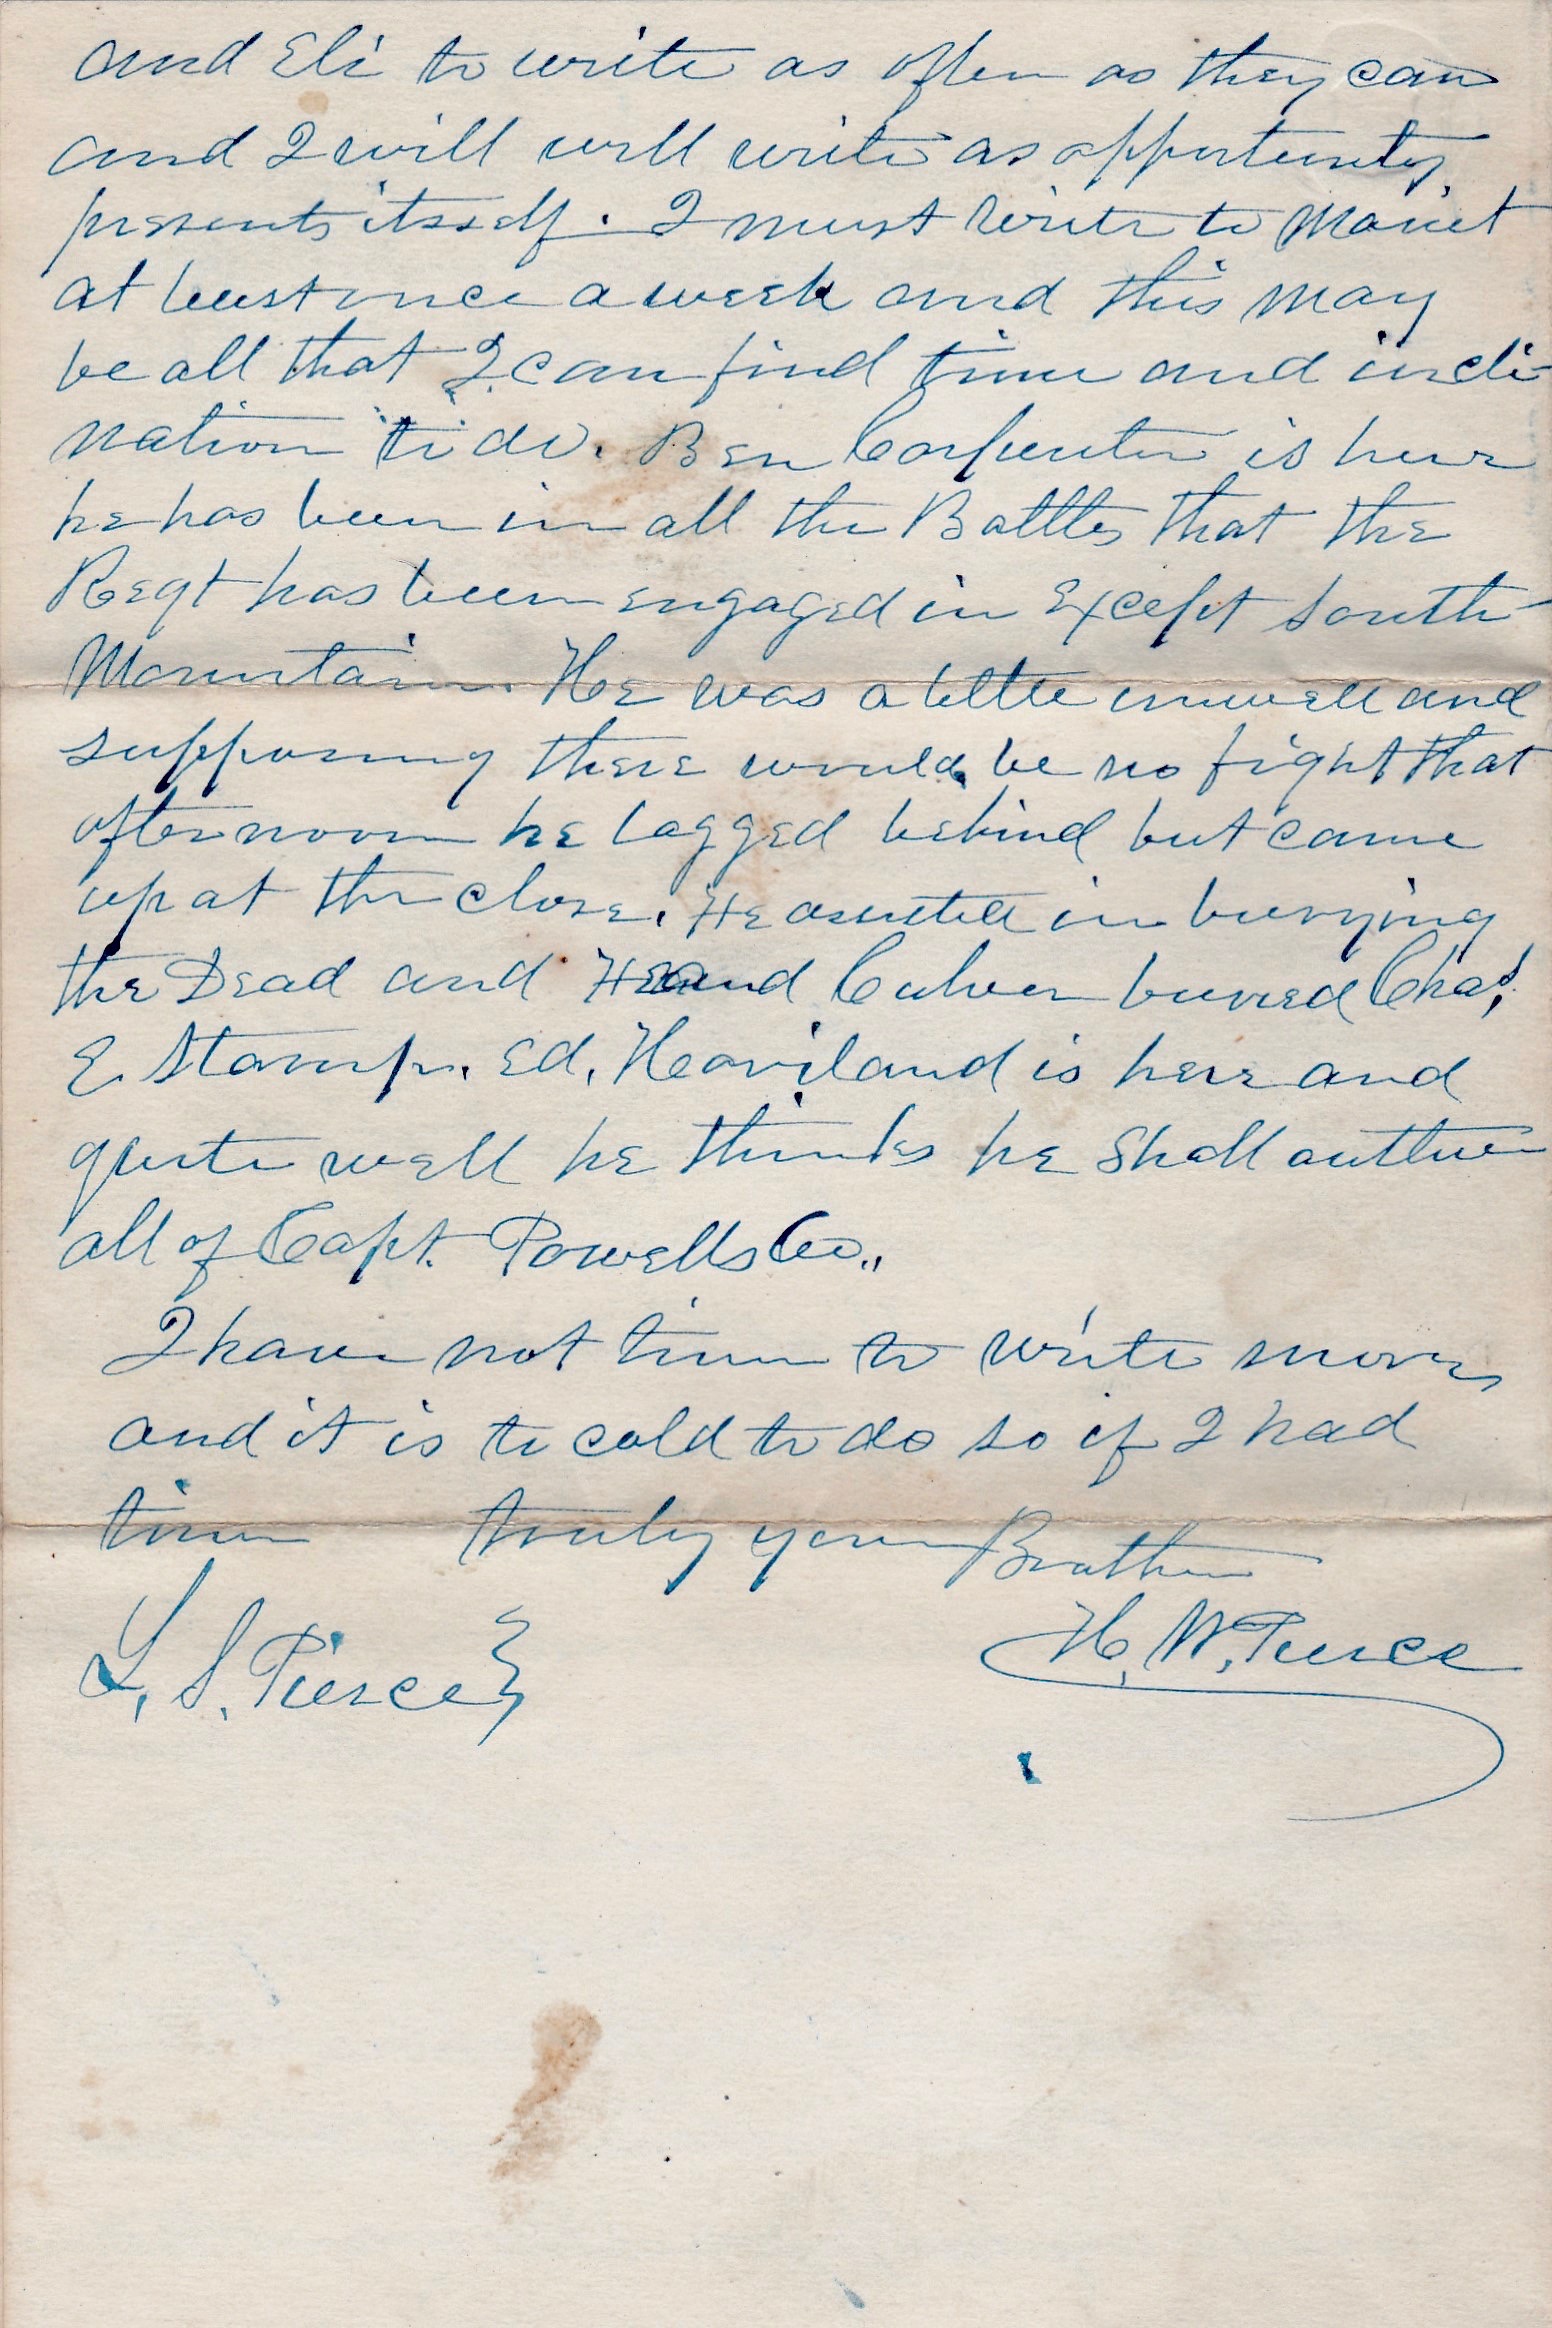 and Eli to write as often as they can
and I will will write as opportunity
presents itself. I must write to
at least once a week and this may
be all that I can find time and incli-
nation to do. Ben Carpenter is here
he has been in all the Battles that the
Regt has been engaged in Except South-
Mountain. He was a little unwell and
supposing there would be no fight that
afternoon he lagged behind but came
up at the close. He assisted in burying
the Dead and He and Culver buried Chas,
E Stamp. Ed, Haviland is here and
quite well he thinks he shall outlive
all of Capt. Powells Co.,
I have not time to write more,
and it is to cold to do so if I had
time truly your Brother
L. S. Pierce H. W. Pierce